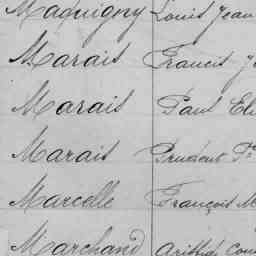 Maquigny Louis Jean
Marais Francis J
Marais Paul Eli
Marais Prudent P
Marcelle François M
Marchand